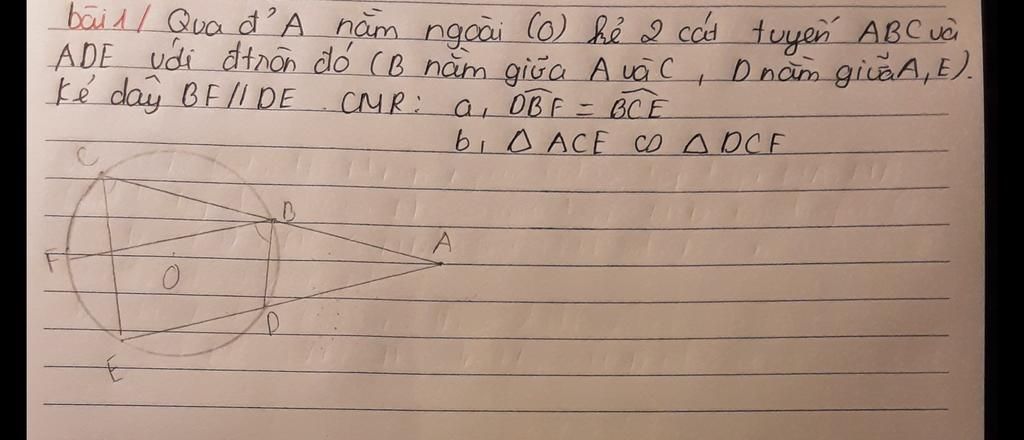 bài 1/ Qua đ' A nằm ngoài (O) kẻ 2 cát tuyến ABC và
ADE với đtròn đó (B nằm giữa A và C, D nằm giữa A, E).
Kẻ dây BF // DE. CMR: a, DBF = BCE
b, △ ACE ∽ △ DCF
C
B
A
F
O
D
E